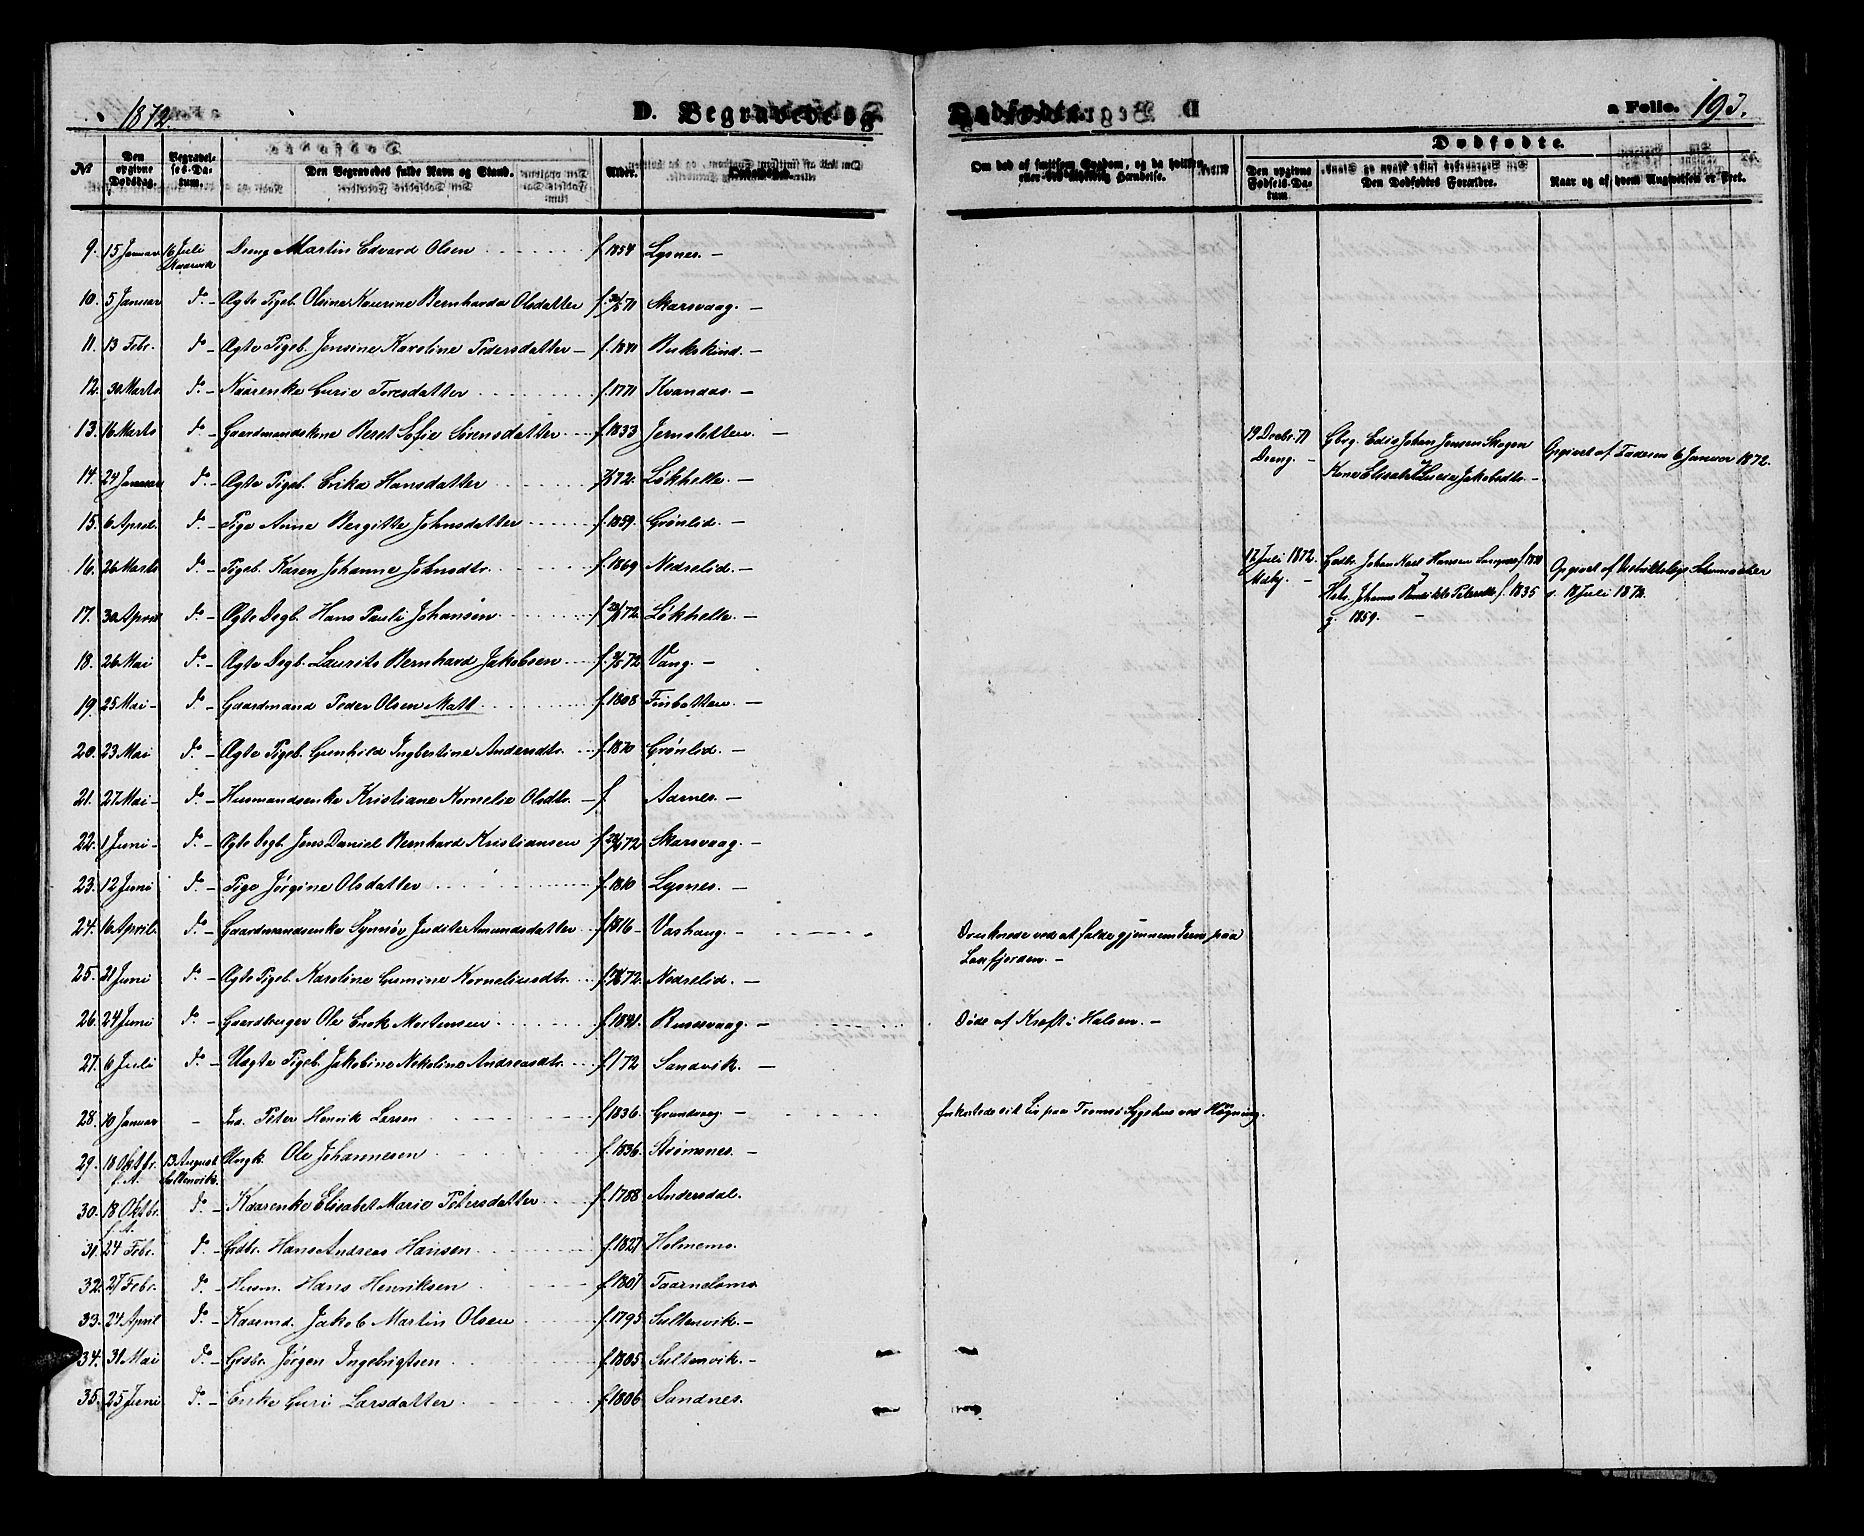 1872. D. Begravede og Dødfødte. a Folio. 193.
Dødfødte.
No Den opgivne Dødsdag. Begravelses-Datum. Den Begravedes fulde Navn og Stand. Alder. Om død af smitsom Sygdom, og da hvilken, eller ved ulykkelig Hændelse. Den opgivne Fødsels-Datum. Den Dødfødtes Forældre. Naar og af hvem Angivelsen er skeet.
9. 15 Januar 16 Juli Dreng Martin Edvard Olsen f. 1854 Lysnes. –
10. 5 Januar do – Ægte Pigeb. Olsine Kaurine Bernharda Olsdatter f. 71 Skarsvaag. –
11. 13 Febr. do – Ægte Pigeb. Jensine Karoline Pedersdatter – f. 1871 Bukskind. –
12. 30 Marts do – Kaarenke Gurie Toresdatter f. 1771 Kvanaas. –
13. 16 Marts do – Gaardmandskone Beret Sofie Sørensdatter f. 1833 –
19 Decbr. 71 Gbrg. Edis Johan Jensen Skogen Opgivet af Faderen 6 Januar 1872.
Dreng. – Kone Elisabet Lucie Jakobsdtr. –
14. 24 Januar do – Ægte Pigeb. Erika Hansdatter 72. Løkhelle. –
15. 6 April. do – Pige Anne Bergitte Johnsdatter f. 1859. Grønlid. –
16. 26 Marts do – Pigeb. Karen Johanne Johnsdtr. f. 1869 Nedrelid. –
17 Juli 1872. Gaardbr. Johan Karl Hansen
– Hstr. Johanna f. 1835 s. 18 Juli 1872.
g. 1859. –
17. 30 April do – Ægte Drgb. Hans Pauli Johansen f. 72. Løkhelle. –
18. 26 Mai do – Ægte Drgb. Laurits Bernhard Jakobsen f. 72 Vang. –
19. 25 Mai – do – Gaardmand Peder Olsen Matt. f. 1808 Finbotten. –
20. 23 Mai do – Ægte Pigeb. Gunhild Ingbertine Andersdtr. f. 1870 Grønlid. –
21. 27 Mai – do – Husmandsenke Kristiane Kornelia Olsdtr. – f. Aarnes. –
22. 1 Juni – do – Ægte Drgb. Jens Daniel Bernhard Kristiansen f. 72 Skarsvaag. –
23. 12 Juni do – Pige Jørgine Olsdatter f. 1810 Lysnes. –
24. 16 April. do – Gaardmandsenke Synnøv Judite Amundsdatter f. 1816 – Vashaug. – Druknede ved at falde gjennem Isen paa
Laxfjorden. –
25. 21 Juni do – Ægte Pigeb. Karoline Gumine Korneliusdtr. f. 72. Nedrelid. –
26. 24 Juni do – Gaardbruger Ole Enok Mortensen f. 1841. Russevaag. – Døde af Kræft i Halsen. –
27. 6 Juli do – Uægte Pigeb. Jakobine Nekoline Andreasdtr. f. 72 Sandvik. –
28. 10 Januar – Ind. Peter Henrik Larsen f. 1836. Grundvaag. – forkortede sit Liv paa Tromsø Sygehus ved Hængning.
29. 18 Oktbr. f. A. 13 August Sultenvik. Ungk. Ole Johannesen f. 1836. Strømsnes. –
30. 18 Oktbr. f. A. do – Kaarenke Elisabet Marie Petersdatter f. 1788 Andersdal.
31. 24 Febr. do – Grdbr. Hans Andreas Hansen f. 1827 Holmemo.
32. 27 Febr. do – Husm. Hans Henriksen f. 1807
33. 24 April do – Kaarmd. Jakob Martin Olsen f. 1795 Sultenvik. –
34. 31 Mai do – Grdbr. Jørgen Ingebrigtsen f. 1805 Sultenvik. –
35. 25 Juni do – Enke Guri Larsdatter f. 1806 Sandnes.